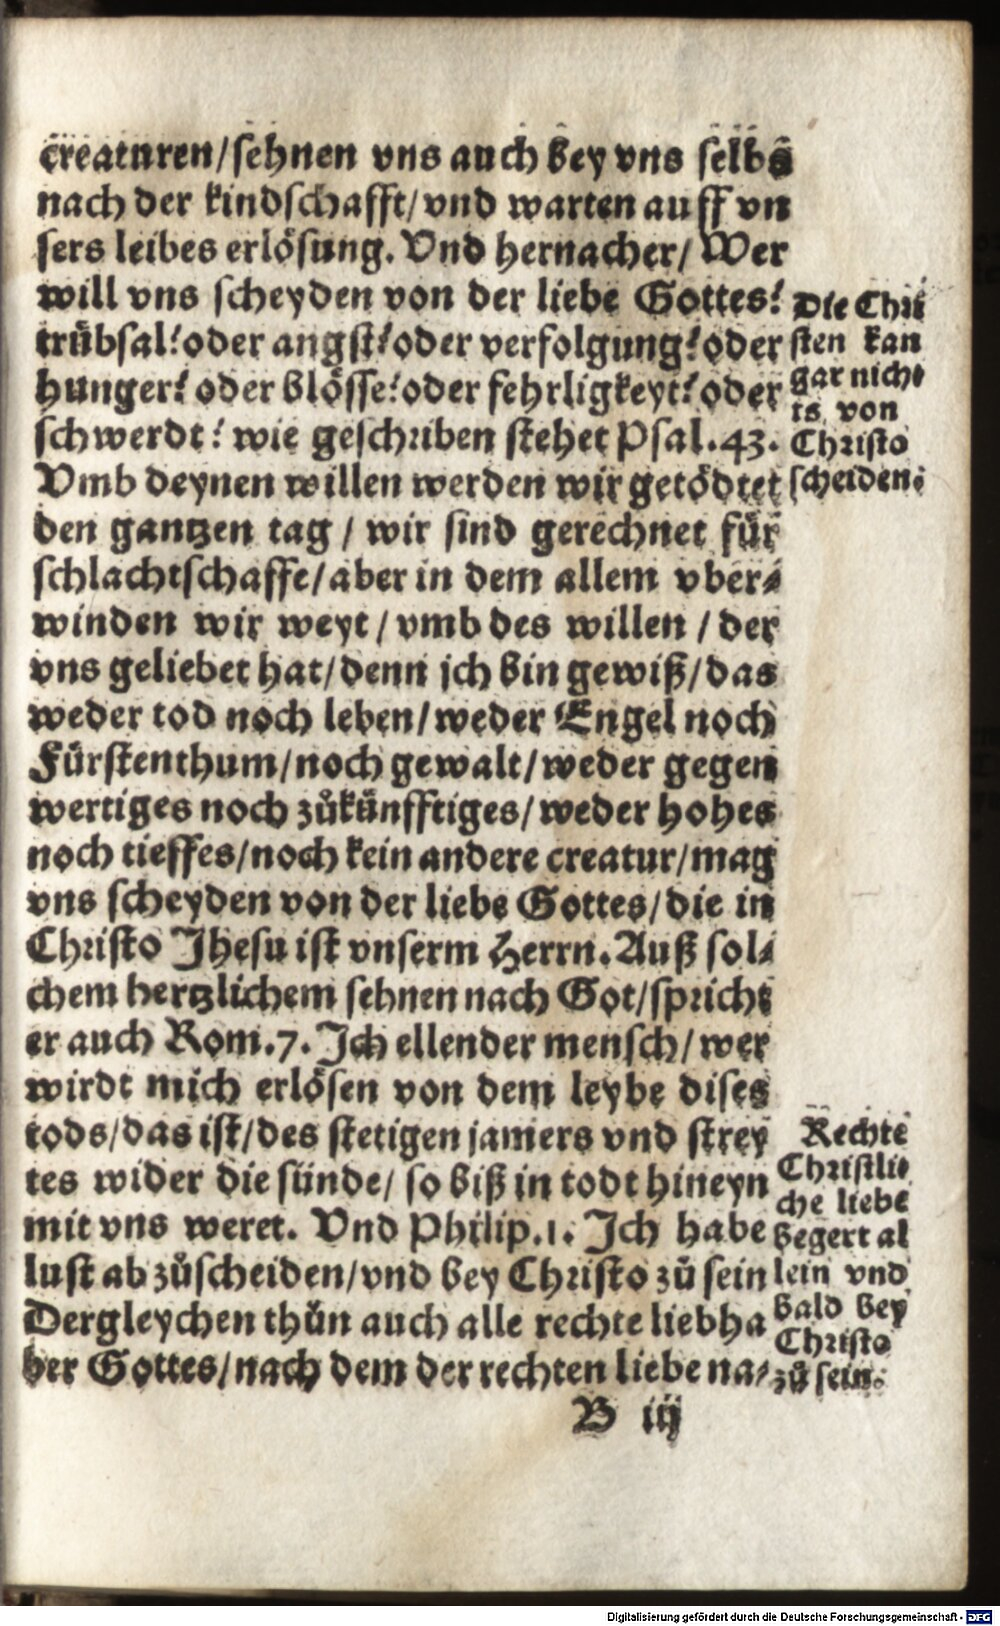 creaturen/sehnen vns auch bey vns selbs
nach der kindschafft/vnd warten auff vn
sers leibes erlösung. Vnd hernacher/ Wer
will vns scheyden von der liebe Gottes?
trübsal?oder angst?oder verfolgung?oder
hunger? oder blösse?oder fehrligkeyt? oder
schwerdt? wie geschriben stehet Psal.43.
Vmb deynen willen werden wir getödtet
den gantzen tag / wir sind gerechnet für
schlachtschaffe/aber in dem allem vber-
winden wir weyt / vmb des willen / der
vns geliebet hat/denn jch bin gewiß/das
weder tod noch leben/weder Engel noch
Fürstenthum/noch gewalt/weder gegen
wertiges noch zůkünfftiges/weder hohes
noch tieffes/noch kein andere creatur/mag
vns scheyden von der liebe Gottes/die in
Christo Jhesu ist vnserm Herrn. Auß sol-
chem hertzlichem sehnen nach Got/spricht
er auch Rom.7. Jch ellender mensch/wer
wirdt mich erlösen von dem leybe dises
tods/das ist/des stetigen jamers vnd strey
tes wider die sünde/ so biß in todt hineyn
mit vns weret. Vnd Philip.1. Jch habe
lust ab zůscheiden/vnd bey Christo zů sein
Dergleychen thůn auch alle rechte liebha
ber Gottes/nach dem der rechten liebe na-
B iij
Die Chri
sten kan
gar nich-
ts von
Christo
scheiden.
Rechte
Christli-
che liebe
begert al
lein vnd
bald bey
Christo
zů sein.
Digitalisierung gefördert durch die Deutsche Forschungsgemeinschaft - DFG